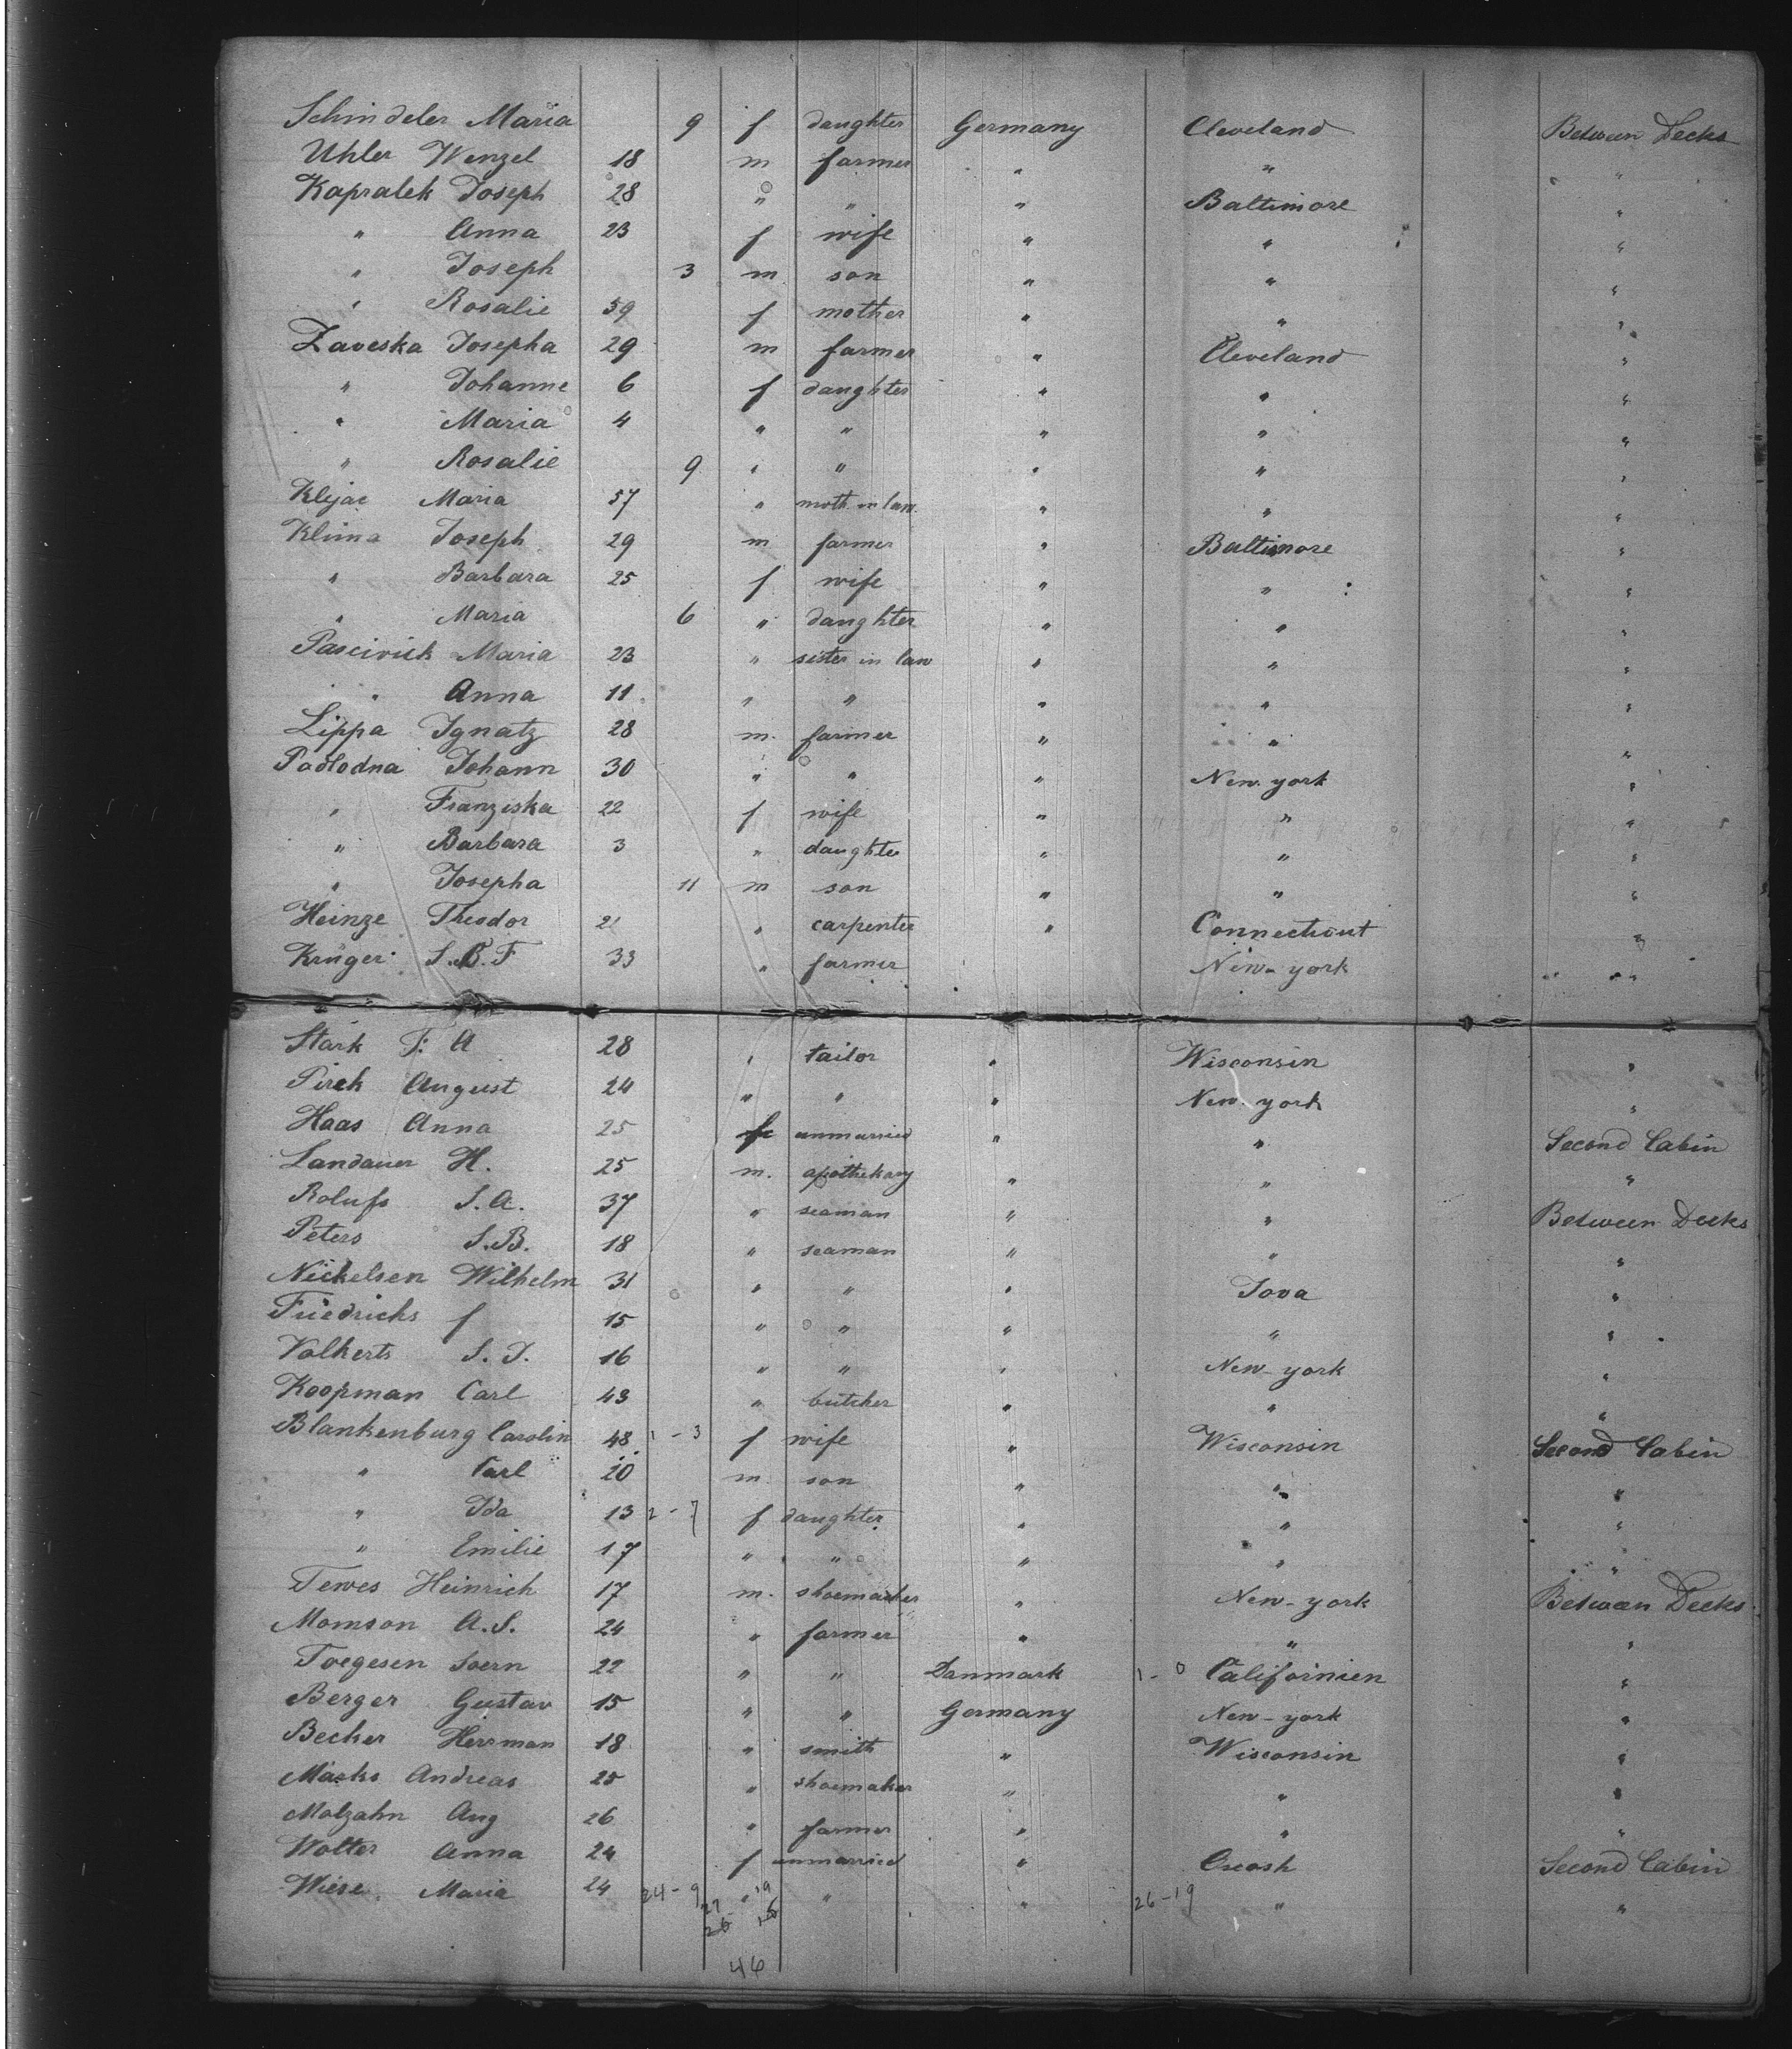 Schindeler Maria 9 f daughter Germany Cleveland Between Decks
Uhler Wenzel 18 m farmer " " "
Kapralek Joseph 28 " " " Baltimore "
" Anna 23 f wife " " "
" Joseph 3 m son " " "
" Rosalie 59 f mother " " "
Zaveska Josepha 29 m farmer " Cleveland "
" Johanne 6 f daughter " " "
" Maria 4 " " " " "
" Rosalie 9 " " " " "
Klijac Maria 57 " moth in law " " "
Klima Joseph 29 m farmer " Baltimore "
" Barbara 25 f wife " " "
" Maria 6 " daughter " " "
Pascivick Maria 23 " sister in law " " "
" Anna 11 " " " " "
Lippa Ignatz 28 m. farmer " " "
Padlodna Johann 30 " " " New-york "
" Franziska 22 f wife " " "
" Barbara 3 " daughter " " "
" Josepha 11 m son " " "
Heinze Theodor 21 " carpenter " Connecticut "
Krüger S.B.F 33 " farmer New-york " "
Stark F. A 28 " tailor " Wisconsin "
Pirek August 24 " " " New-york "
Haas Anna 25 f unmarried " " Second Cabin
Landauer H. 25 m. apothekary " " "
Rolufs S.A. 37 " seaman " " Between Decks
Peters S.B. 18 " seaman " " "
Nickelsen Wilhelm 31 " " " Iova "
Friedrichs f 15 " " " " "
Volkerts S. J. 16 " " " New-york "
Koopman Carl 43 " butcher " " "
Blankenburg Carolin 48 1-3 f wife " Wisconsin Second Cabin
" Carl 20 m. son " " "
" Ida 13 2-7 f daughter " " "
" Emilie 17 " " " " "
Tewes Heinrich 17 m. shoemacker " New-york Between Decks
Momson A.S. 24 " farmer " " "
Toegesen Soern 22 " " Danmark 1-0 Californien "
Berger Gustav 15 " " Germany New-york "
Becher Herrman 18 " smith " Wisconsin "
Macks Andreas 25 " shoemaker " " "
Molzahn Aug 26 " farmer " " "
Wolter Anna 24 f unmarried " Oscosh Second Cabin
Wiese Maria 24 24-9 " 19 " " 26-19 " "
27 18
26
46